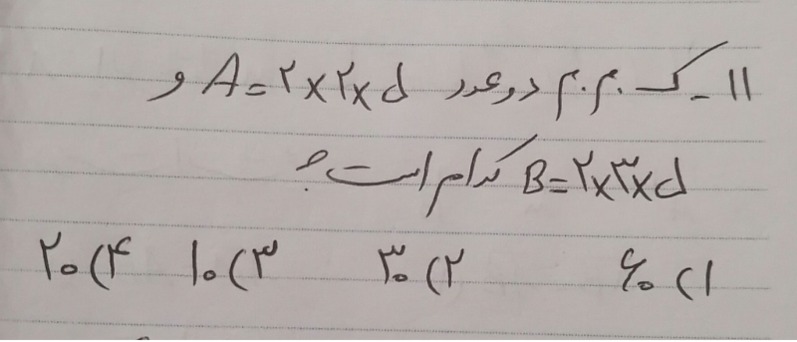 ۱۱ـ ک.م.م دو عدد A=۲×۲×۵ و
B=۲×۳×۵ کدام است؟
۱) ۶۰ ۲) ۳۰ ۳) ۱۰ ۴) ۲۰